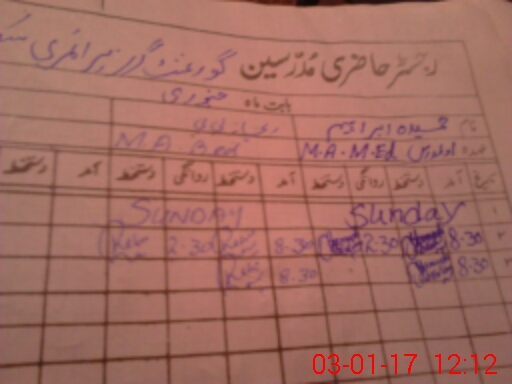 رجسٹر حاضری مدرسین گورنمنٹ گرلز پرائمری
بابت ماہ جنوری
نام حمیدہ ابراہیم
عہدہ M.A-M.Ed M.A B.ed
تاریخ آمد دستخط روانگی دستخط آمد دستخط روانگی دستخط آمد دستخط
۱ Sunday SUNDAY
۲ 8.30 2.30 8.30 2.30
۳ 8.30 8.30
03-01-17 12:12